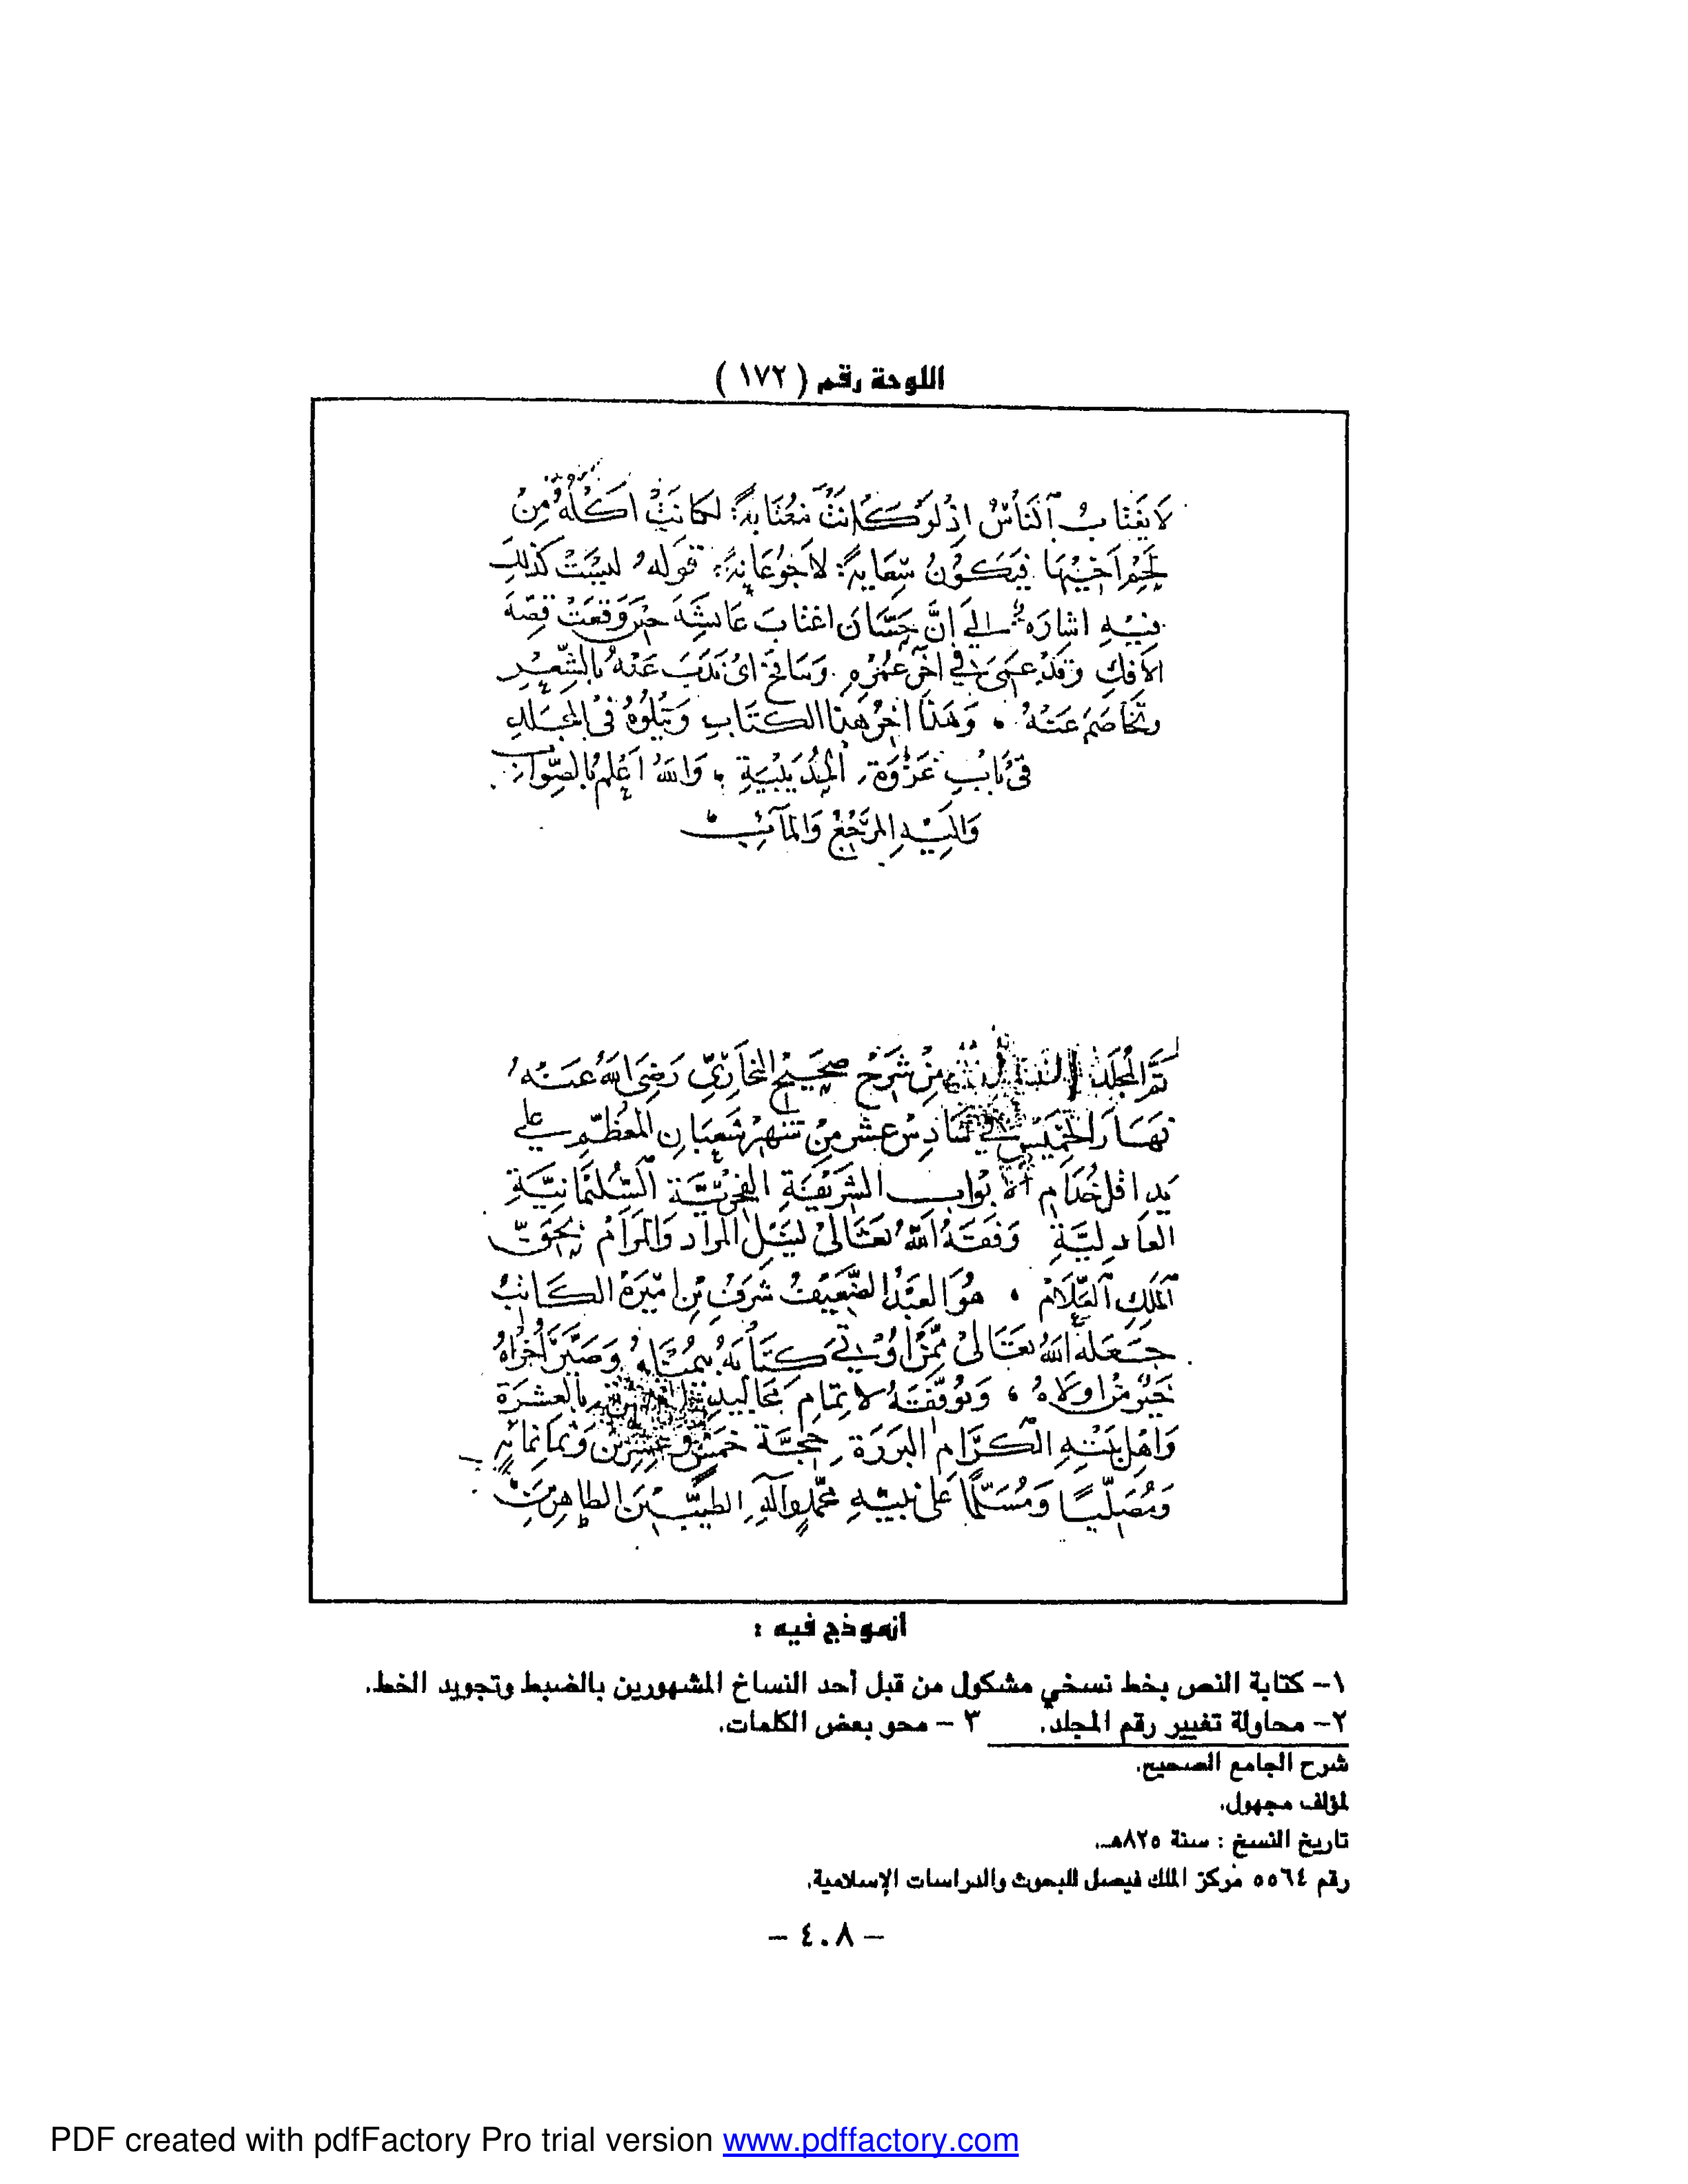 اللوحة رقم ( ١٧٢ )
لَا يَغْتَابُ النَّاسَ اِذْ لَوْ كَانَتْ مُغْتَابَةً لَكَانَتْ اٰكِلَةً مِنْ
لَحْمِ اَخِيْهَا فَيَكُوْنُ شَبْعَانَةً لَا جَوْعَانَةً قوله لَسْتَ كَذٰلِكَ
فِيْهِ اشارة الى اَنَّ حَسَّانَ اغتابَ عَائشَةَ حِيْنَ وَقَعَتْ قِصَّة
الافك وَقَدْ عَمِيَ في اخر عُمْرِه
وَيخاصِمَ عَنْهُ وَهٰذَا اخِرُ هٰذَا الكتَابِ وَيَتْلُوْهُ فى المجَلَّدِ
فى بَابِ غَزْوَةِ الحُدَيْبِيَةِ وَاللهُ اَعْلم بِالصَّوَابِ
وَاِلَيْهِ المَرْجَعُ وَالمآبُ
تَمَّ المُجلَّدُ مِنْ شَرْحِ صَحِيْحِ البُخَارِيِّ رَضِيَ اللهُ عَنْهُ
نَهَارَ الخَمِيْسِ فِي سَادِسْ عشر مِنْ شَهْرِ شَعْبَانِ المُعَظَّمِ عَلى
يَدِ اقلِّ خُدَّامِ الابْوابِ الشَرِيْفَةِ الفَخْرِيَّةِ السُّلَيْمَانِيَّةِ
العَادِلِيَّةِ وَفَّقَهُ اللهُ تعَالىٰ لِنَيْلِ المرَادِ وَالمَرَامِ بِحَقِّ
المَلِكِ العَلَّامِ هُوَ العَبْدُ الضَّعِيْفُ شَرَفُ بْنُ اَمِيْرَةَ الكَاتبُ
جَعَلهُ اللهُ تعَالىٰ مِمَّنْ اُوْتِيَ كِتَابَهُ بِيُمْنَاهُ وَصَيَّرَ اُخْرَاهُ
خَيْرٌ مِنْ اولَاهُ وَيُوَفِّقهُ لاتمَامِ بالعشَرَة
وَاهْلِ بَيْتِهِ الكرَامِ البَرَرَة حِجَّة خَمْسٍ وعِشرِيْن وثمَانمائة
وَمُصَلِّيًا وَمُسَلِّمًا عَلى نبيّهِ مُحمَّدٍ وَآلِهِ الطيِّبِيْنَ الطاهِرِيْنَ
انموذج فيه :
١- كتابة النص بخط نسخي مشكول من قبل أحد النساخ المشهورين بالضبط وتجويد الخط.
٢- محاولة تغيير رقم المجلد. ٣ - محو بعض الكلمات.
شرح الجامع الصحيح.
لمؤلف مجهول.
تاريخ النسخ : سنة ٨٢٥هـ.
رقم ٥٥٦٤ مركز الملك فيصل للبحوث والدراسات الإسلامية.
- ٤٠٨ -
PDF created with pdfFactory Pro trial version www.pdffactory.com